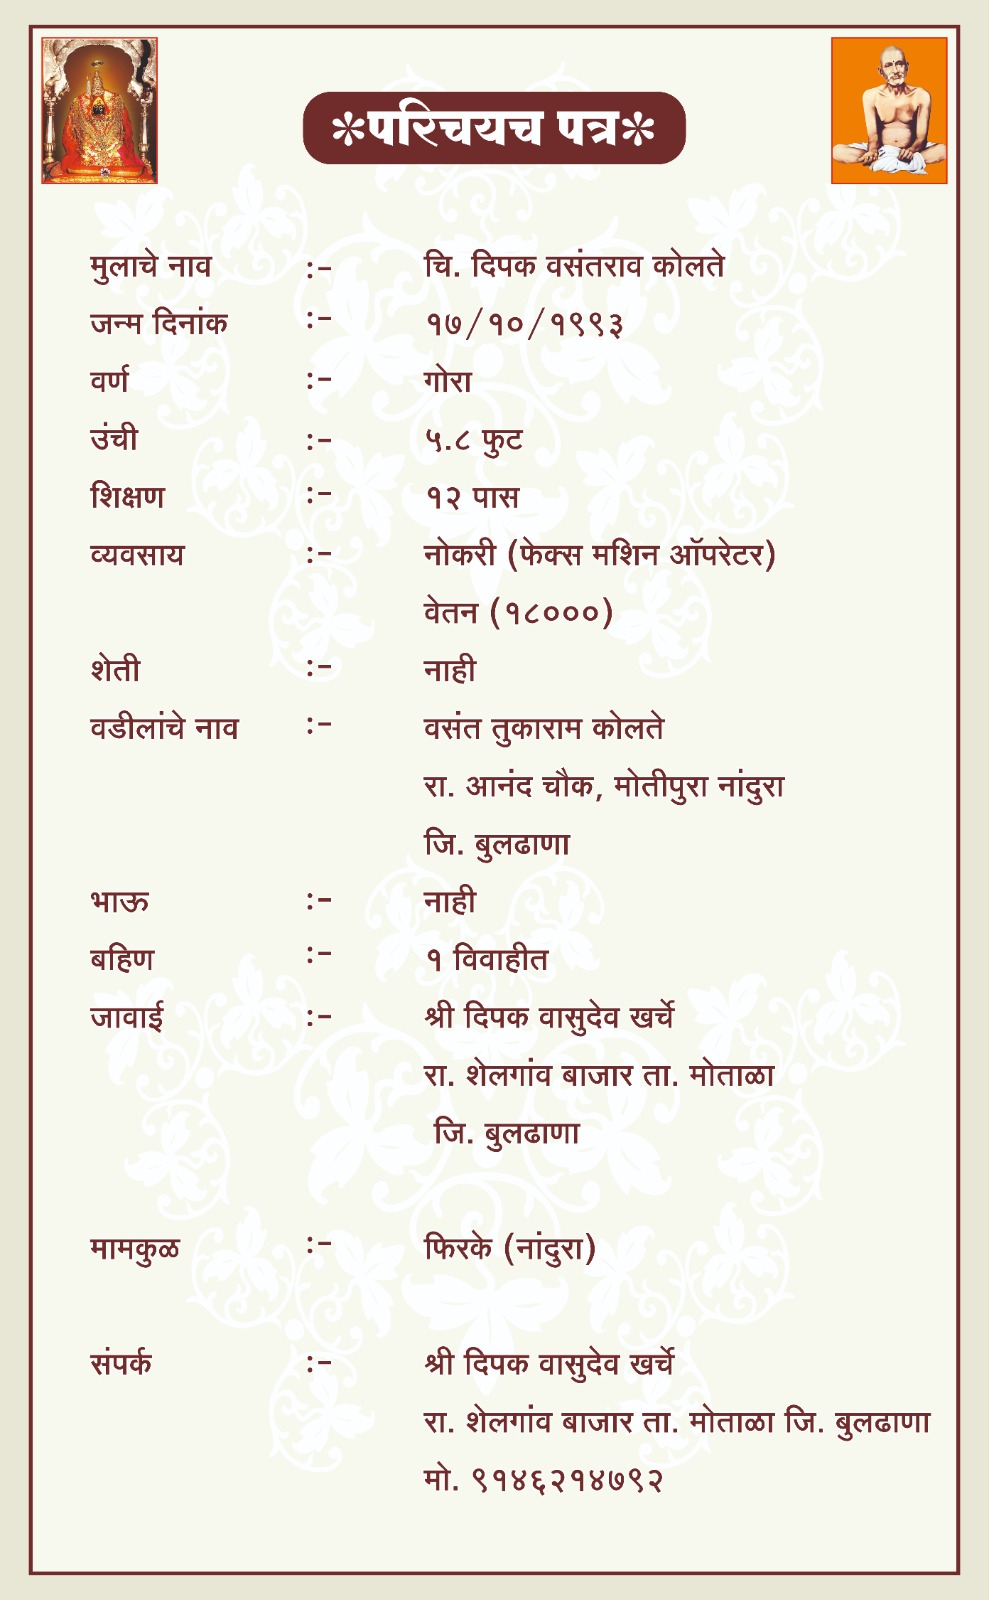 *परिचयच पत्र*
मुलाचे नाव :- चि. दिपक वसंतराव कोलते
जन्म दिनांक :- १७/१०/१९९३
वर्ण :- गोरा
उंची :- ५.८ फुट
शिक्षण :- १२ पास
व्यवसाय :- नोकरी (फेक्स मशिन ऑपरेटर)
वेतन (१८०००)
शेती :- नाही
वडीलांचे नाव :- वसंत तुकाराम कोलते
रा. आनंद चौक, मोतीपुरा नांदुरा
जि. बुलढाणा
भाऊ :- नाही
बहिण :- १ विवाहीत
जावाई :- श्री दिपक वासुदेव खर्चे
रा. शेलगांव बाजार ता. मोताळा
जि. बुलढाणा
मामकुळ :- फिरके (नांदुरा)
संपर्क :- श्री दिपक वासुदेव खर्चे
रा. शेलगांव बाजार ता. मोताळा जि. बुलढाणा
मो. ९१४६२१४७९२